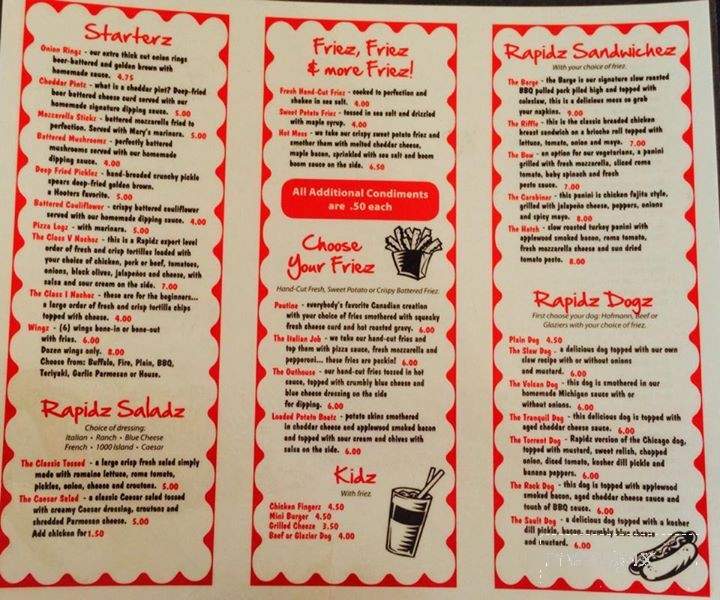 Starterz
Onion Ringz - our extra thick cut onion rings
beer-battered and golden brown with
homemade sauce. 4.75
Cheddar Pintz - what is a cheddar pint? Deep-fried
beer battered cheese curd served with our
homemade signature dipping sauce. 5.00
Mozzarella Stickz - battered mozzarella fried to
perfection. Served with Mary's marinara. 5.00
Battered Mushroomz - perfectly battered
mushrooms served with our homemade
dipping sauce. 4.00
Deep Fried Picklez - hand-breaded crunchy pickle
spears deep-fried golden brown.
a Hooters favorite. 5.00
Battered Cauliflower - crispy battered cauliflower
served with our homemade dipping sauce. 4.00
Pizza Logz - with marinara. 5.00
The Class V Nachoz - this is a Rapidz expert level
order of fresh and crisp tortillas loaded with
your choice of chicken, pork or beef, tomatoes,
onions, black olives, jalapeños and cheese, with
salsa and sour cream on the side. 7.00
The Class I Nachoz - these are for the beginners...
a large order of fresh and crisp tortilla chips
topped with cheese. 4.00
Wingz - (6) wings bone-in or bone-out
with fries. 6.00
Dozen wings only. 8.00
Choose from: Buffalo, Fire, Plain, BBQ,
Teriyaki, Garlic Parmesan or House.
Rapidz Saladz
Choice of dressing:
Italian • Ranch • Blue Cheese
French • 1000 Island • Caesar
The Classic Tossed - a large crisp fresh salad simply
made with romaine lettuce, roma tomato,
pickles, onion, cheese and croutons. 5.00
The Caesar Salad - a classic Caesar salad tossed
with creamy Caesar dressing, croutons and
shredded Parmesan cheese. 5.00
Add chicken for 1.50
Friez, Friez
& more Friez!
Fresh Hand-Cut Friez - cooked to perfection and
shaken in sea salt. 4.00
Sweet Potato Friez - tossed in sea salt and drizzled
with maple syrup. 4.00
Hot Mess - we take our crispy sweet potato friez and
smother them with melted cheddar cheese,
maple bacon, sprinkled with sea salt and boom
boom sauce on the side. 6.50
All Additional Condiments
are .50 each
Choose
Your Friez
Hand-Cut Fresh, Sweet Potato or Crispy Battered Friez.
Poutine - everybody's favorite Canadian creation
with your choice of friez smothered with squeaky
fresh cheese curd and hot roasted gravy. 6.00
The Italian Job - we take our hand-cut fries and
top them with pizza sauce, fresh mozzarella and
pepperoni... these fries are packin! 6.00
The Outhouse - our hand-cut fries tossed in hot
sauce, topped with crumbly blue cheese and
blue cheese dressing on the side
for dipping. 6.00
Loaded Potato Boatz - potato skins smothered
in cheddar cheese and applewood smoked bacon
and topped with sour cream and chives with
salsa on the side. 6.00
Kidz
With friez.
Chicken Fingerz 4.50
Mini Burger 4.50
Grilled Cheeze 3.50
Beef or Glazier Dog 4.00
Rapidz Sandwichez
With your choice of friez.
The Barge - the Barge is our signature slow roasted
BBQ pulled pork piled high and topped with
coleslaw, this is a delicious mess so grab
your napkins. 9.00
The Riffle - this is the classic breaded chicken
breast sandwich on a brioche roll topped with
lettuce, tomato, onion and mayo. 7.00
The Bow - an option for our vegetarians, a panini
grilled with fresh mozzarella, sliced roma
tomato, baby spinach and fresh
pesto sauce. 7.00
The Carabiner - this panini is chicken fajita style,
grilled with jalapeño cheese, peppers, onions
and spicy mayo. 8.00
The Hatch - slow roasted turkey panini with
applewood smoked bacon, roma tomato,
fresh mozzarella cheese and sun dried
tomato pesto. 8.00
Rapidz Dogz
First choose your dog: Hofmann, Beef or
Glaziers with your choice of friez.
Plain Dog 4.50
The Slaw Dog - a delicious dog topped with our own
slaw recipe with or without onions
and mustard. 6.00
The Volcan Dog - this dog is smothered in our
homemade Michigan sauce with or
without onions. 6.00
The Tranquil Dog - this delicious dog is topped with
aged cheddar cheese sauce. 6.00
The Torrent Dog - Rapidz version of the Chicago dog,
topped with mustard, sweet relish, chopped
onion, diced tomato, kosher dill pickle and
banana peppers. 6.00
The Rock Dog - this dog is topped with applewood
smoked bacon, aged cheddar cheese sauce and
touch of BBQ sauce. 6.00
The Sault Dog - a delicious dog topped with a kosher
dill pickle, bacon, crumbly blue cheese
and mustard. 6.00